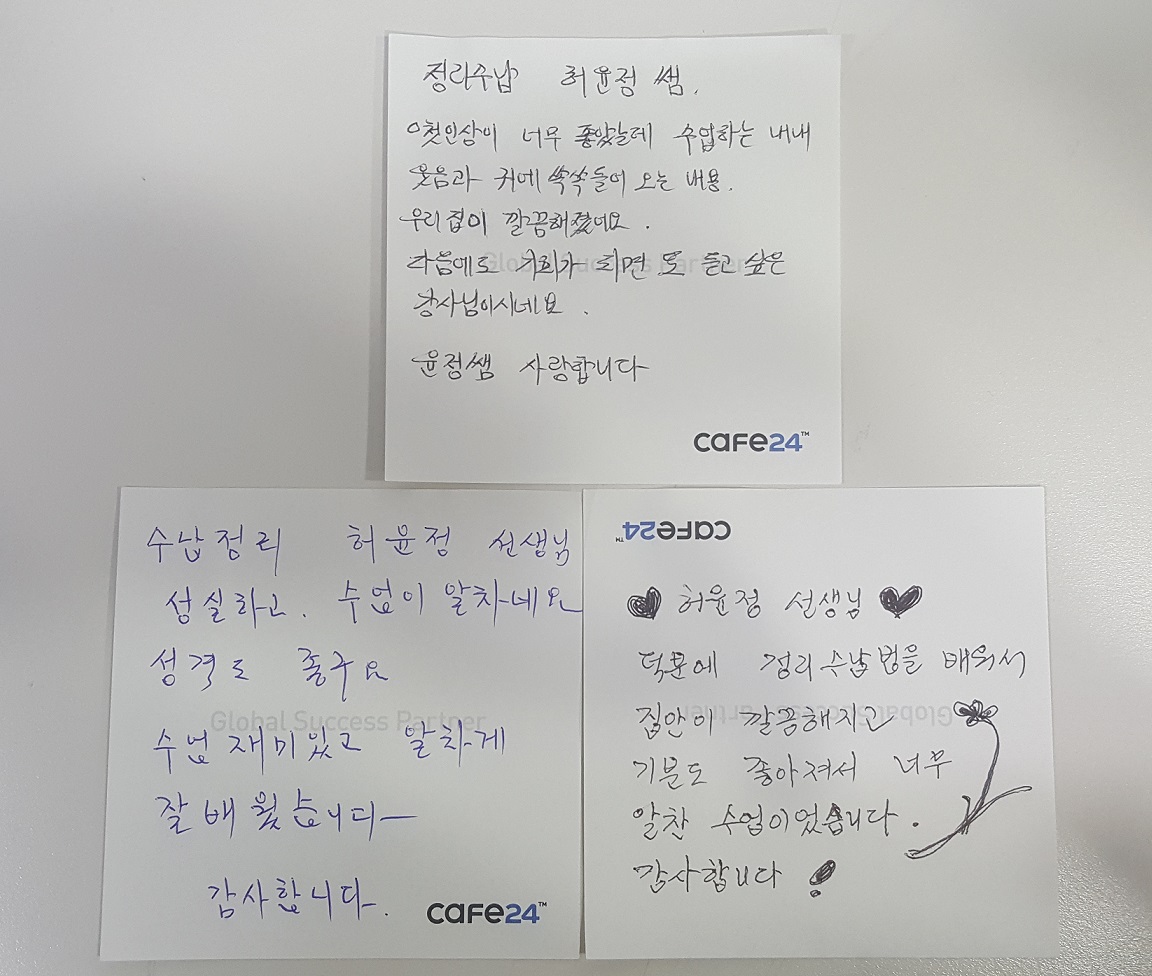 정리수납 허윤정 쌤.
첫인상이 너무 좋았는데 수업하는 내내
웃음과 귀에 쏙쏙 들어 오는 내용.
우리집이 깔끔해졌네요.
다음에도 기회가 되면 또 듣고 싶은
Global Success Partner
강사님이시네요.
윤정쌤 사랑합니다
cafe24™
수납정리 허윤정 선생님
성실하고. 수업이 알차네요
성격도 좋구요
Global Success Partner
수업 재미있고 알차게
잘 배웠습니다
감사합니다.
cafe24™
cafe24™
허윤정 선생님
덕분에 정리수납법을 배워서
집안이 깔끔해지고
Global Success Partner
기분도 좋아져서 너무
알찬 수업이었습니다.
감사합니다!